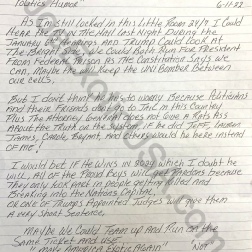 Politics Humor 6-11-22
As I'm still locked in this little room 24/7 I could
Hear the on the Hall last Night During the
January 6th Hearings and Trump could look at
The Bright side, we could Both Run for President
From Federal Prison as the Constitution says we
can, maybe the will keep the UNI Bomber Between
our cells.
But I don't think he has to worry Because Politicians
and their Friends don't go to Jail in this Country
Plus the Attorney General does not give a Rats Ass
about the Truth or the System, if he did Jeff, Lauren
James, Carole, Bryant, and others would be here instead
of me!
I would bet if he wins in 2024 which I doubt he
will, all of the Proud Boys will get Pardons because
They only but in people getting killed and
Breaking into the Nations Capitol
or one of Trumps Appointed Judges will give them
a very short sentence.
Maybe we could Team up and Run on the
Same Ticket and use
"Make America Exotic Again" Not